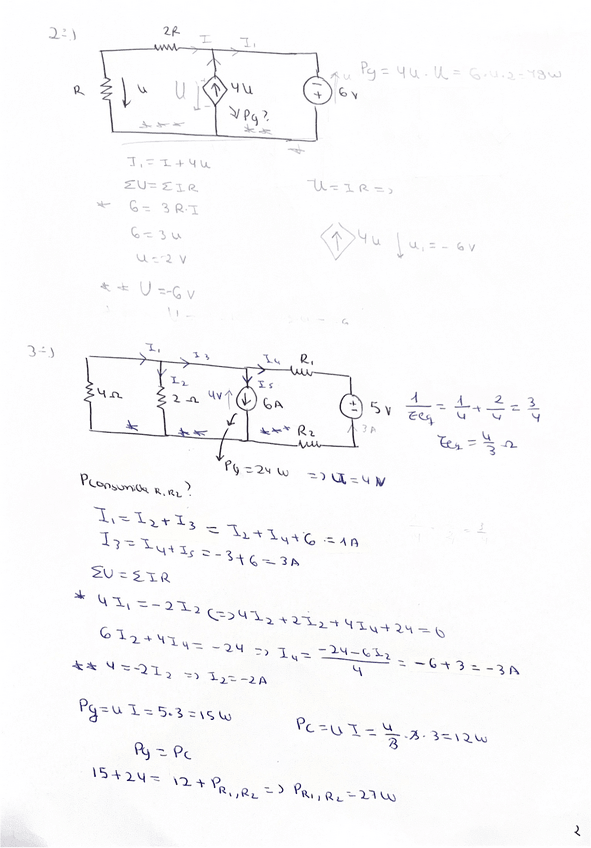 2-)
2R I I₁
R u U 4u 6v Pg = 4u · U = 6·4·2 = 48w
Pg?
* * * * *
*
I₁ = I + 4u
ΣU = ΣIR U = IR =>
* 6 = 3R·I
6 = 3u 4u u₁ = -6v
u = 2v
** U = -6v
3-)
I₁ I₃ I₄ R₁
I₂ I₅
4Ω 2Ω 4v 6A 5v 1/Req = 1/4 + 2/4 = 3/4
3A
* ** *** R₂ Req = 4/3 Ω
Pg = 24w => U = 4V
Pconsumida R₁R₂?
I₁ = I₂ + I₃ = I₂ + I₄ + 6 = 1A
I₃ = I₄ + I₅ = -3 + 6 = 3A
ΣU = ΣIR
* 4I₁ = -2I₂ <=> 4I₂ + 2I₂ + 4I₄ + 24 = 0
6I₂ + 4I₄ = -24 => I₄ = (-24 - 6I₂)/4 = -6 + 3 = -3A
** 4 = -2I₂ => I₂ = -2A
Pg = u I = 5·3 = 15w Pc = u I = 4/3·3·3 = 12w
Pg = Pc
15 + 24 = 12 + PR₁,R₂ => PR₁,R₂ = 27w
2